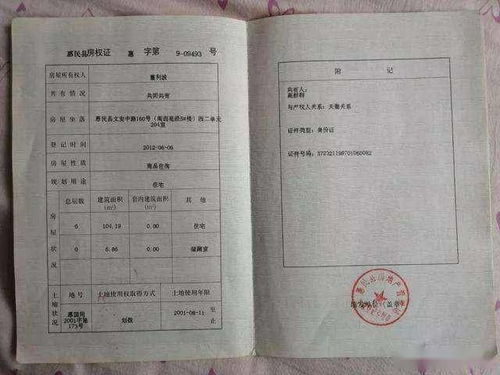 惠民县房权证 惠 字第 9-09493 号
房屋所有权人 惠利波
共有情况 共同共有
房屋坐落 惠民县文安中路160号（南西苑经5#楼）西二单元204室
登记时间 2012-06-06
房屋性质 商品住房
规划用途 住宅
房屋状况
总层数 建筑面积(m²) 套内建筑面积(m²) 其他
6 104.19 0.00 住宅
0 6.86 0.00 储藏室
土地状况
地号 土地使用权取得方式 土地使用年限
惠国用2001字第173号 划拨 2001-08-11 至 止
附 记
共有人：
与产权人关系：夫妻关系
证件类型：身份证
证件号码：372321198701060082
填发单位（盖章）